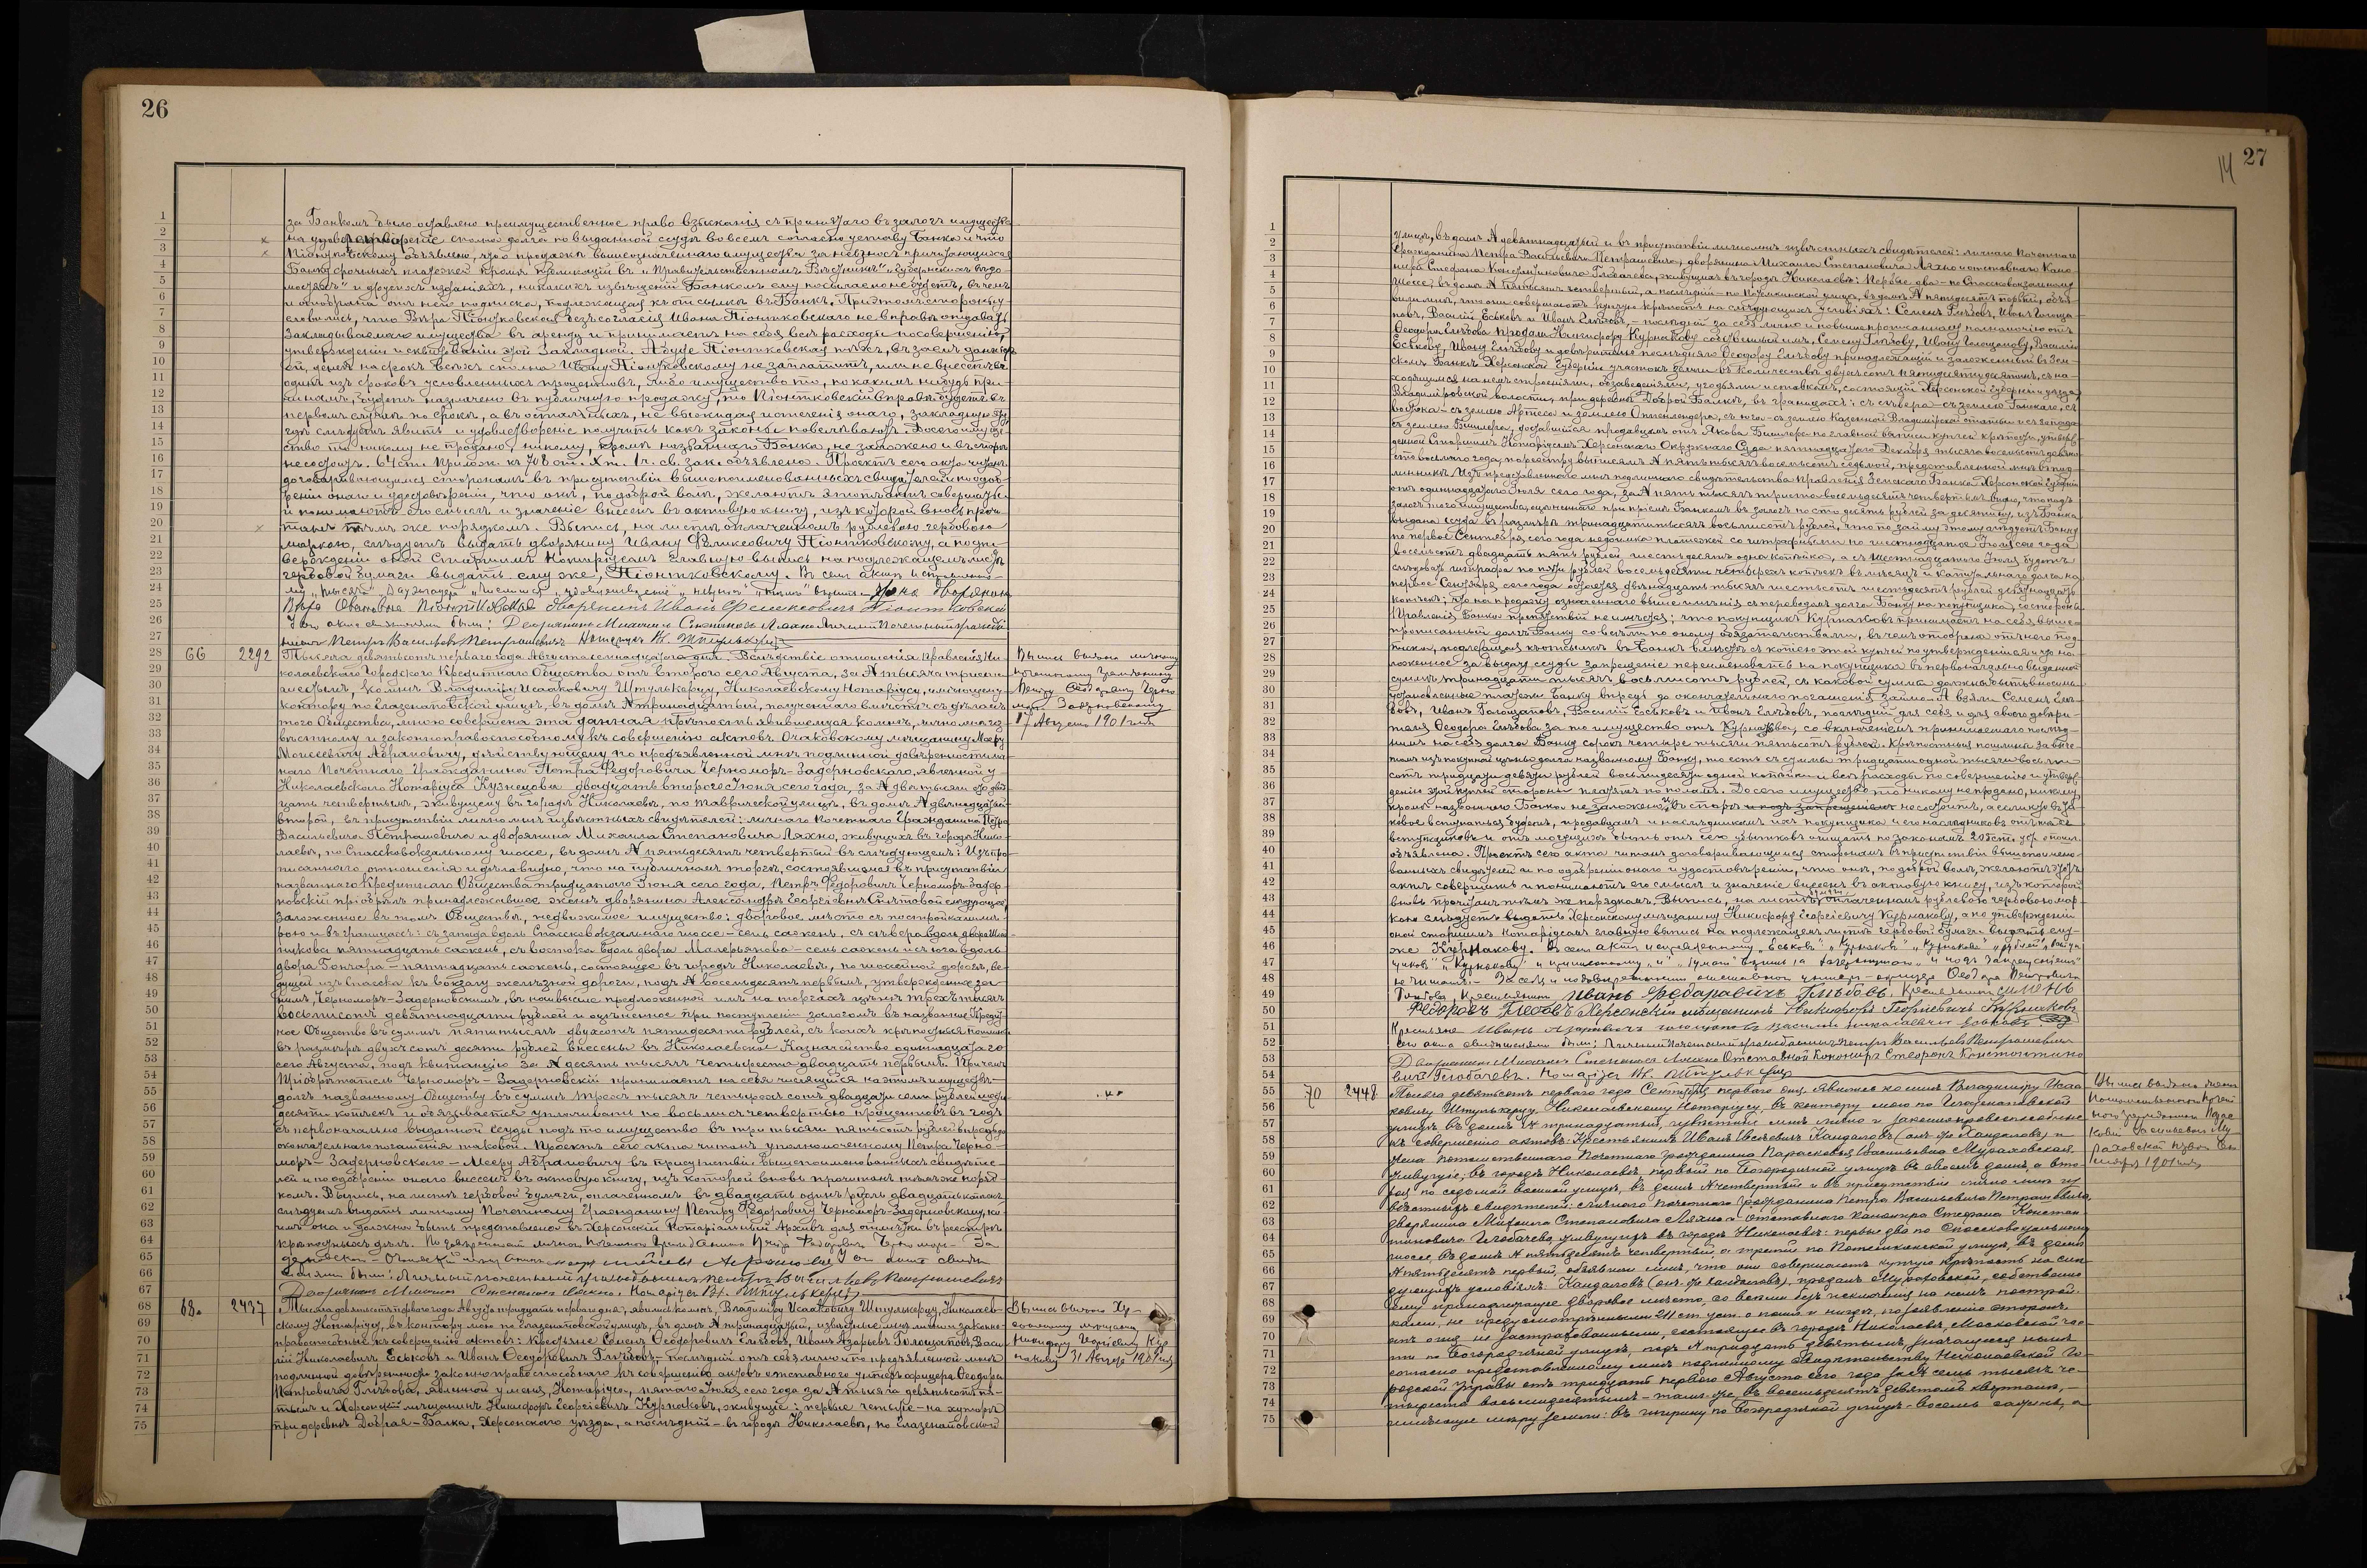 26
за Банкомъ было оставлено преимущественное право взысканія съ принятаго въ залогъ имущества
на удовлетвореніе сполна долга по выданной ссудѣ во всемъ согласно уставу Банка и что
Піонтковскому объявлено, что о продажѣ вышеозначеннаго имущества за невзносъ причитающихся
Банку срочныхъ платежей кромѣ публикаціи въ „Правительственномъ Вѣстникѣ“ „Губернскихъ вѣдо-
мостяхъ“ и другихъ изданіяхъ, никакихъ извѣщеній Банкомъ ему посылаемо не будетъ, въ чемъ
и отобрана отъ него подписка, подлежащая къ отсылкѣ въ Банкъ. При этомъ стороны у-
словились, что Вѣра Піонтковская безъ согласія Ивана Піонтковскаго не вправѣ отдавать
закладываемаго имущества въ аренду и принимаетъ на себя всѣ расходы по совершенію,
утвержденію и сей закладной. А буде Піонтковская тѣхъ, въ заемъ данныхъ
ей, денегъ на срокъ всѣхъ сполна Ивану Піонтковскому не заплатитъ, или не внесетъ въ
одинъ изъ сроковъ условленныхъ процентовъ, либо имущество то, по какимъ нибудь при-
чинамъ, будетъ назначено въ публичную продажу, то Піонтковскій вправѣ будетъ въ
первомъ случаѣ по срокѣ, а въ остальныхъ, не выжидая истеченія онаго, закладную эту
гдѣ слѣдуетъ явить и удовлетвореніе получить какъ законы повелѣваютъ. До сего имуще-
ство то никому не продано, никому, кромѣ названнаго Банка, не заложено и въ спорѣ
не состоитъ. 64 ст. Прилож. къ 708 ст. X т. 1 ч. св. зак. объявлена. Проектъ сего акта читанъ
договаривающимся сторонамъ въ присутствіи вышепоименованныхъ свидѣтелей и по одоб-
реніи онаго и удостовѣреніи, что онѣ, по доброй волѣ, желаютъ этотъ актъ совершить
и понимаютъ его смыслъ и значеніе внесенъ въ актовую книгу, изъ которой вновь проч-
танъ тѣмъ же порядкомъ. Выпись, на листѣ, оплаченномъ рублевою гербовою
маркою, слѣдуетъ выдать дворянину Ивану Феликсовичу Піонтковскому, а по утв-
вержденіи оной Старшимъ Нотаріусомъ Главную выпись на подлежащемъ листѣ
гербовой бумаги выдать ему же, Піонтковскому. В семъ актѣ исправлено-
Вѣра Ивановна Піонтковская Дворянинъ Иванъ Феликсовичъ Піонтковскій
У сего акта свидѣтелями были: Дворянинъ Михаилъ Степановъ Ляхно Личный Почетный граждан-
нинъ Петръ Васильевъ Петрашевичъ Нотаріусъ В. Штулькерцъ
66 2292 Тысяча девятьсотъ перваго года Августа семнадцатаго дня. Вслѣдствіе отношенія Правленія Ни-
колаевскаго Городского Кредитнаго Общества отъ второго сего Августа, за № тысяча триста
ко мнѣ Владиміру Исааковичу Штулькерцу, Николаевскому Нотаріусу, имѣющему
контору по Глазенаповской улицѣ, въ домѣ № тринадцатый, полученнаго вмѣстѣ съ дѣломъ
того Общества, мною совершена эта данная крѣпость явившемуся ко мнѣ, лично мнѣ из-
вѣстному и законноправоспособному къ совершенію актовъ Очаковскому мѣщанину Мееру
Моисеевичу Абрамовичу, дѣйствующему по предъявленной мнѣ подлинной довѣренности лич-
наго Почетнаго Гражданина Петра Федоровича Черноморъ-Задерновскаго, явленной у
Николаевскаго Нотаріуса Кузнецова двадцать второго Іюня сего года, за № двѣ тысячи сто два-
цать четвертымъ, живущему въ городѣ Николаевѣ, по Таврической улицѣ, въ домѣ № двѣнадцать
второй, въ присутствіи лично мнѣ извѣстныхъ свидѣтелей: личнаго Почетнаго Гражданина Петра
Васильевича Петрашевича и дворянина Михаила Степановича Ляхно, живущихъ въ городѣ Нико-
лаевѣ, по Спассковокзальному шоссе, въ домѣ № пятьдесятъ четвертый въ слѣдующемъ: Изъ про-
писаннаго отношенія и дѣла видно, что на публичномъ торгѣ, состоявшемся въ присутствіи
названнаго Кредитнаго Общества тридцатаго Іюня сего года, Петръ Федоровичъ Черноморъ-Задер-
новскій пріобрѣлъ принадлежавшее женѣ дворянина Александрѣ Георгіевнѣ
заложенное въ томъ Обществѣ, недвижимое имущество: дворовое мѣсто съ постройками мѣ-
рою и въ границахъ: съ запада вдоль Спассковокзальнаго шоссе - семь сажень, съ сѣвера вдоль двора
никова пятнадцать сажень, съ востока вдоль двора Малерьянова - семь сажень и съ юга вдоль
двора Гончара - пятнадцать сажень, состоящее въ городѣ Николаевѣ, по шоссейной дорогѣ, ве-
дущей изъ Спасска къ вокзалу желѣзной дороги, подъ № восемьдесятъ первымъ, утвержденное за
нимъ, Черноморъ-Задерновскимъ, въ наивысше предложенной имъ на торгахъ цѣнѣ трехъ тысячъ
восьмисотъ девятнадцати рублей и оцѣненное при поступленіи залогомъ въ названное Кредит-
ное Общество въ суммѣ пяти тысячъ двухсотъ пятидесяти рублей, съ коихъ крѣпостныя пошлины
въ размѣрѣ двухъ сотъ десяти рублей внесены въ Николаевское Казначейство одиннадцатаго
сего Августа, подъ квитанцію за № десять тысячъ четыреста двадцать первымъ. Причемъ
пріобрѣтатель Черноморъ-Задерновскій принимаетъ на себя числящійся на этомъ имуществѣ
долгъ названному Обществу въ суммѣ трехъ тысячъ четырехъ сотъ двадцати семи рублей шести-
десяти копѣекъ и обязывается уплачивать по восьми съ четвертью процентовъ въ годъ
съ первоначально выданной ссуды подъ то имущество въ три тысячи пятьсотъ рублей впредь до
окончательнаго погашенія таковой. Проектъ сего акта читанъ уполномоченному Петра Черно-
моръ-Задерновскаго - Мееру Абрамовичу въ присутствіи вышепоименованныхъ свидѣте-
лей и по одобреніи онаго внесенъ въ актовую книгу, изъ которой вновь прочитанъ тѣмъ же поряд-
комъ. Выпись, на листѣ гербовой бумаги, оплаченномъ въ двадцать одинъ рубль двадцать пять коп.
слѣдуетъ выдать личному Почетному Гражданину Петру Федоровичу Черноморъ-Задерновскому, ко-
имъ она и должна быть представлена въ Херсонскій Нотаріальный Архивъ для отмѣтки въ реестрѣ
крѣпостныхъ дѣлъ. По довѣренности личнаго Почетнаго Гражданина Петра Федоровича Черноморъ-За-
дерновскаго - Очаковскій мѣщанинъ Меер Абрамовичъ У сего акта свидѣ-
телями были: Личный почетный гражданинъ Петръ Васильевъ Петрашевичъ
Дворянинъ Михаилъ Степановъ Ляхно. Нотаріусъ В. Штулькерцъ
Выпись выдана личному
почетному гражданину
Петру Федоровичу Черно-
моръ Задерновскому
17 Августа 1901 года
68. 2437 Тысяча девятьсотъ перваго года Августа тридцать перваго дня, явились ко мнѣ, Владиміру Исааковичу Штулькерцу, Николаев-
скому Нотаріусу, въ контору мою по Глазенаповской улицѣ, въ домѣ № тринадцатый, извѣстные мнѣ лично и законно-
правоспособные къ совершенію актовъ: крестьяне Семенъ Ѳеодоровичъ Глѣбовъ, Иванъ Азарьевъ Голощаповъ, Васи-
лій Николаевичъ Еськовъ и Иванъ Ѳеодоровичъ Глѣбовъ, - послѣдній отъ себя лично и по предъявленной мнѣ
подлинной довѣренности законноправоспособнаго къ совершенію актовъ отставного унтеръ-офицера Ѳеодора
Петровича Глѣбова, явленной у меня, Нотаріуса, пятаго Іюля сего года за № тысяча девятьсотъ пя-
тымъ и Херсонскій мѣщанинъ Никифоръ Георгіевичъ Курнаковъ, живущіе: первые четыре - на хуторѣ
при деревнѣ Добрая-Балка, Херсонскаго уѣзда, а послѣдній - въ городѣ Николаевѣ, по Глазенаповской
Выпись выдана Хер-
сонскому мѣщанину
Никифору Георгіевичу Кур-
накову 31 Августа 1901 года
27
14
улицѣ, въ домѣ № девятнадцатый и въ присутствіи лично мнѣ извѣстныхъ свидѣтелей: личнаго Почетнаго
Гражданина Петра Васильевича Петрашевича, дворянина Михаила Степановича Ляхно и отставного Кано-
нира Стефана Константиновича Глобачева, живущихъ въ городѣ Николаевѣ: Первые два - по Спассковокзальному
шоссе, въ домѣ № пятьдесятъ четвертый, а послѣдній - по Потемкинской улицѣ, въ домѣ № пятьдесятъ первый, объя-
вили мнѣ, что они совершаютъ купчую крѣпость на слѣдующихъ условіяхъ: Семенъ Глѣбовъ, Иванъ Голоща-
повъ, Василій Еськовъ и Иванъ Глѣбовъ, - послѣдній за себя лично и по вышепрописанному полномочію отъ
Ѳеодора Глѣбова продали Никифору Курнакову собственный имъ, Семену Глѣбову, Ивану Голощапову, Василію
Еськову, Ивану Глѣбову и довѣрителю послѣдняго Ѳеодору Глѣбову принадлежащій и заложенный въ Зем-
скомъ Банкѣ Херсонской губерніи участокъ земли въ количествѣ двухсотъ пятидесяти десятинъ, съ на-
ходящимися на немъ строеніями, обзаведеніями, угодьями и ставкомъ, состоящій Херсонской губерніи и уѣзда,
Владиміровской волости, при деревнѣ Доброй Балкѣ, въ границахъ: съ сѣвера - съ землею съ
востока - съ землею Артеса и землею Оппенлендера, съ юга - съ землею Казенной Владимірской статьи и съ запада
съ землею Бишлера, доставшійся продавцамъ отъ Якова Бишлера по главной выписи купчей крѣпости, утверж-
денной Старшимъ Нотаріусомъ Херсонскаго Окружнаго Суда пятнадцатаго Декабря тысяча восемьсотъ девяно-
сто восьмого года, по реестру выписямъ № пять тысячъ восемьсотъ седьмой, представленной мнѣ въ под-
линникѣ. Изъ представленнаго мнѣ подлиннаго свидѣтельства Правленія Земскаго Банка Херсонской Губерніи
отъ одиннадцатаго Іюля сего года, за № пять тысячъ триста восемьдесятъ четвертымъ видно, что подъ
залогъ того имущества, оцѣненнаго при пріемѣ Банкомъ въ залогъ по сто десять рублей за десятину, изъ Банка
выдана ссуда въ размѣрѣ тринадцати тысячъ восьмисотъ рублей, что по займу этому слѣдуетъ Банку
по первое Сентября сего года недоимка платежей со штрафными по шестнадцатое Іюля сего года
восемьсотъ двадцать пять рублей, шестьдесятъ одна копѣйка, а съ шестнадцатаго Іюля будетъ
слѣдовать штрафа по пяти рублей восемьдесяти четыре копѣекъ въ мѣсяцъ и капитальнаго долга на
первое Сентября сего года остается двѣнадцать тысячъ шестьсотъ шестьдесятъ рублей
копѣекъ; что на продажу означеннаго выше имѣнія съ переводомъ долга Банку на покупщика, со стороны
Правленія Банка препятствій не имѣется; что покупщикъ Курнаковъ принимаетъ на себя выше-
прописанный долгъ Банку со всѣми по оному обязательствами, въ чемъ отобрана отъ него под-
писка, подлежащая къ отсылкѣ въ Банкъ вмѣстѣ съ копіею этой купчей по утвержденіи и что на-
ложенное за выдачу ссуды запрещеніе переименовать на покупщика въ первоначально выданной
суммѣ тринадцати тысячъ восьмисотъ рублей, съ каковой суммы должны быть вносимы
установленные платежи Банку впредь до окончательнаго погашенія займа. А взяли Семенъ Глѣ-
бовъ, Иванъ Голощаповъ, Василій Еськовъ и Иванъ Глѣбовъ, послѣдній для себя и для своего довѣри-
теля Ѳеодора Глѣбова за то имущество отъ Курнакова, со включеніемъ принимаемаго послѣд-
нимъ на себя долга Банку сорокъ четыре тысячи пятьсотъ рублей. Крѣпостныя пошлины за выче-
томъ изъ покупной цѣны долга названному Банку, то есть съ суммы тридцати одной тысячи восьми-
сотъ тридцати девяти рублей восьмидесяти одной копѣйки и всѣ расходы по совершенію и утверж-
денію этой купчей стороны платятъ по поламъ. До сего имущество то никому не продано, никому,
кромѣ названнаго Банка не заложено, въ спорѣ и подъ запрещеніемъ не состоитъ, а если кто въ та-
ковое вступаться будетъ, продавцамъ и наслѣдникамъ ихъ покупщика и его наслѣдниковъ отъ тѣхъ
вступщиковъ и отъ могущихъ быть отъ сего убытковъ очищать по законамъ. 205 ст. уст. о пошл.
объявлена. Проектъ сего акта читанъ договаривающимся сторонамъ въ присутствіи вышепоимено-
ванныхъ свидѣтелей и по одобреніи онаго и удостовѣреніи, что онѣ, по доброй волѣ, желаютъ этотъ
актъ совершить и понимаютъ его смыслъ и значеніе внесенъ въ актовую книгу, изъ которой
вновь прочитанъ тѣмъ же порядкомъ. Выпись, на листѣ, оплаченномъ рублевою гербовою мар-
кою, слѣдуетъ выдать Херсонскому мѣщанину Никифору Георгіевичу Курнакову, а по утвержденіи
оной старшимъ Нотаріусомъ главную выпись на подлежащемъ листѣ гербовой бумаги выдать ему
же Курнакову.
не читать. - За себя и по довѣренности отставного унтеръ-офицера Ѳеодора Петровича
Глѣбова, Крестьянинъ Иванъ Федаравичъ Глѣбовъ. Крестьянинъ Семенъ
Федоровъ Глебовъ Херсонскій мѣщанинъ Никифоръ Георгіевичъ Курнаковъ
Крестьяне Иванъ Азаровичъ Голощаповъ Василій Николаевичъ Еськовъ. У
сего акта свидѣтелями были: Личный Почетный гражданинъ Петръ Васильевъ Петрашевичъ
Дворянинъ Михаилъ Степановъ Ляхно Отставной Канониръ Стефанъ Константино
вичъ Глобачевъ. Нотаріусъ В. Штулькерцъ
70 2448 Тысяча девятьсотъ перваго года Сентября перваго дня, явились ко мнѣ Владиміру Исаа-
ковичу Штулькерцу, Николаевскому Нотаріусу, въ контору мою по Глазенаповской
улицѣ въ домѣ № тринадцатый, извѣстные мнѣ лично и законноправоспособные
къ совершенію актовъ: Крестьянинъ Иванъ Кандаловъ (онъ же Хандаловъ) и
жена потомственнаго Почетнаго гражданина Парасковья Васильевна Мурахов­ская,
живущіе: въ городѣ Николаевѣ, первый по Богородичной улицѣ въ своемъ домѣ, а вто-
рая по седьмой Военной улицѣ, въ домѣ № четвертый и въ присутствіи лично мнѣ из-
вѣстныхъ свидѣтелей: личнаго Почетнаго гражданина Петра Васильевича Петрашевича,
дворянина Михаила Степановича Ляхно и отставного Канонира Стефана Констан-
тиновича Глобачева, живущихъ въ городѣ Николаевѣ: первые два по Спассковокзальному
шоссе, въ домѣ № пятьдесятъ четвертый, а третій по Потемкинской улицѣ, въ домѣ
№ пятьдесятъ первый, объявили мнѣ, что они совершаютъ купчую крѣпость на слѣ-
дующихъ условіяхъ: Кандаловъ (онъ же Хандаловъ), продалъ Мураховской, собственно
ему принадлежащее дворовое мѣсто, со всѣми безъ исключенія на немъ построй-
ками, не предусмотрѣнными 211 ст. уст. о пошл. и нигдѣ, по заявленію сторонъ,
отъ огня не застрахованными, состоящее въ городѣ Николаевѣ, Московской час-
ти по Богородичной улицѣ, подъ № тридцать девятымъ, значащееся нынѣ
согласно представленному мнѣ подлинному свидѣтельству Николаевской Го-
родской Управы отъ тридцать перваго Августа сего года за № семь тысячъ че-
тыреста восьмидесятымъ - тамъ же, въ восемьдесятъ девятомъ кварталѣ, -
имѣющее мѣру земли: въ ширину по Богородичной улицѣ - восемь сажень, а
Выпись выдана женѣ
Потомственнаго Почет-
наго гражданина Парас-
ковьѣ Васильевнѣ Му-
раховской перваго Сен-
тября 1901 года